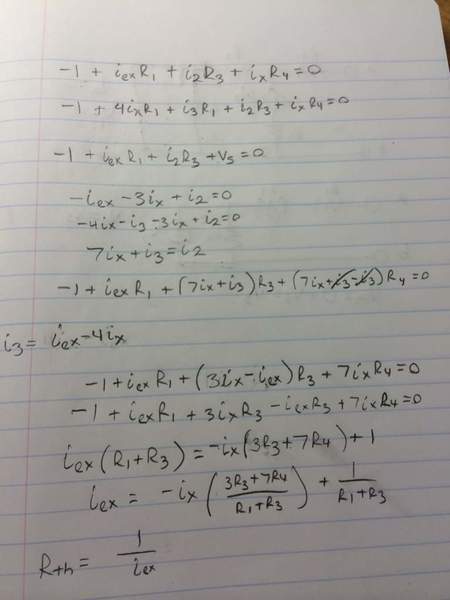 -1 + iexR1 + i2R3 + ixR4=0
-1 + 4ixR1 + i3R1 + i2R3 + ixR4=0
-1 + iexR1 + i2R3 + V5=0
-iex - 3ix + i2=0
-4ix - i3 - 3ix + i2=0
7ix + i3 = i2
-1 + iexR1 + (7ix+i3)R3 + (7ix+i3-i3)R4 =0
i3 = iex-4ix
-1 + iexR1 + (3ix-iex)R3 + 7ixR4=0
-1 + iexR1 + 3ixR3 - iexR3 + 7ixR4=0
iex(R1+R3) = -ix(3R3+7R4) + 1
iex = -ix (3R3+7R4 / R1+R3) + 1 / R1+R3
Rth = 1 / iex